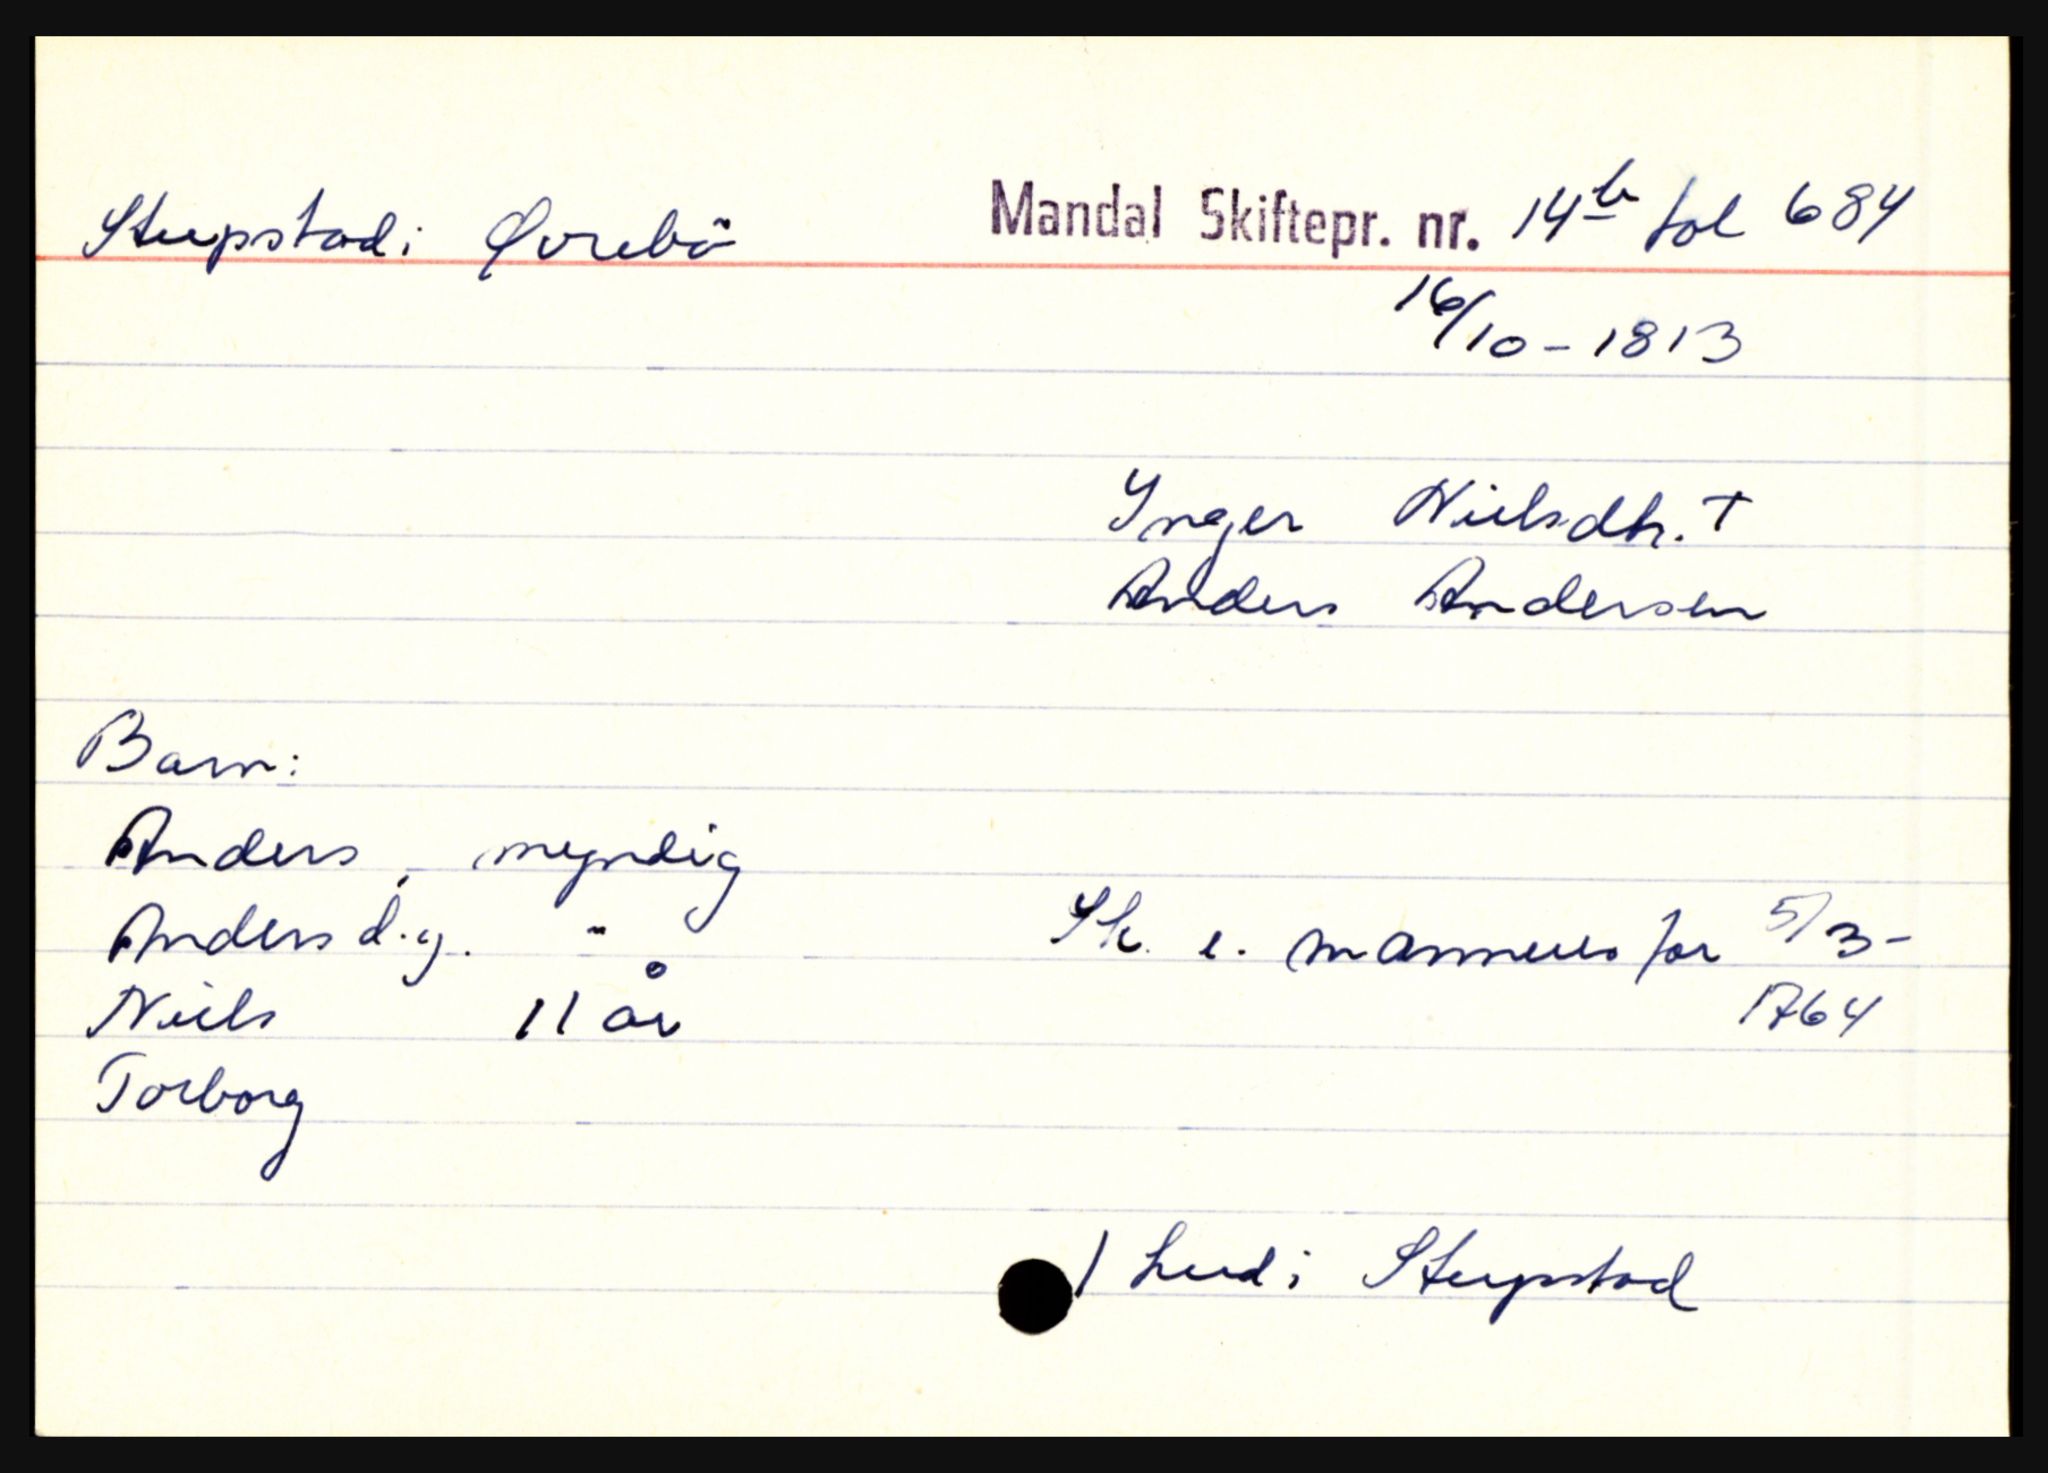 Stupstad i Øvrebö Mandal Skiftepr. nr. 14b fol 684
16/10-1813
Ynger Nielsdtr. +
Anders Andersen
Barn:
Anders, myndig
Anders d.y. "
Niels 11 år
Torborg
Sk. e. mannens far 5/3-
1764
1 hud i Stupstad